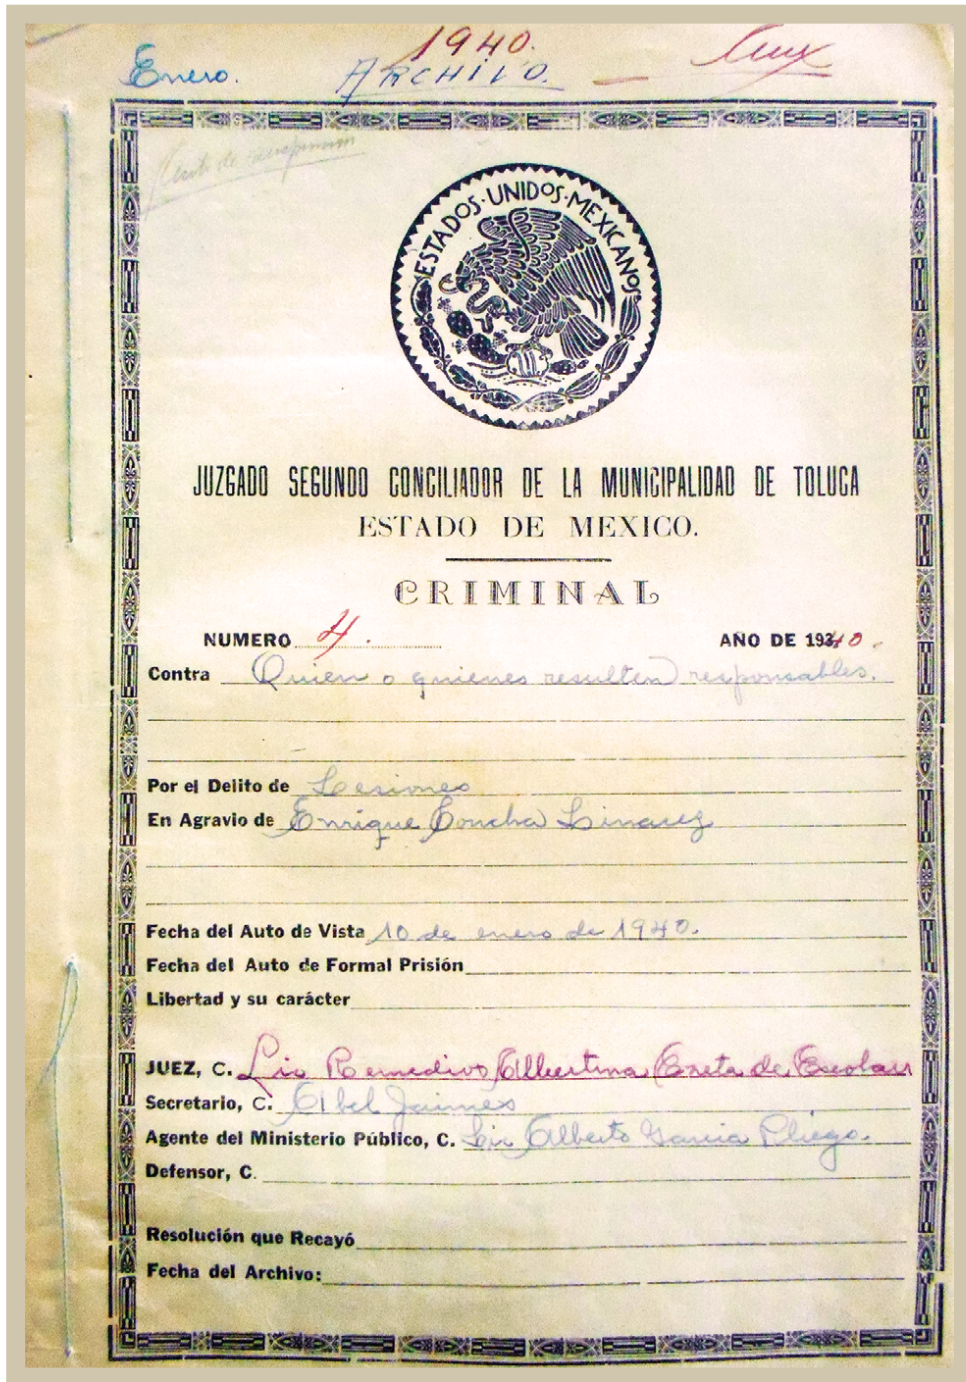 1940.
Enero. ARCHIVO.
ESTADOS·UNIDOS·MEXICANOS
JUZGADO SEGUNDO CONCILIADOR DE LA MUNICIPALIDAD DE TOLUCA
ESTADO DE MEXICO.
CRIMINAL
NUMERO 4. AÑO DE 1940.
Contra Quien o quienes resulten responsables.
Por el Delito de Lesiones
En Agravio de Enrique Concha Linarez
Fecha del Auto de Vista 10 de enero de 1940.
Fecha del Auto de Formal Prisión
Libertad y su carácter
JUEZ, C. Lic Remedios Albertina Ezeta de
Secretario, C. Abel Jaimes
Agente del Ministerio Público, C. Lic Alberto Garcia Pliego.
Defensor, C.
Resolución que Recayó
Fecha del Archivo: